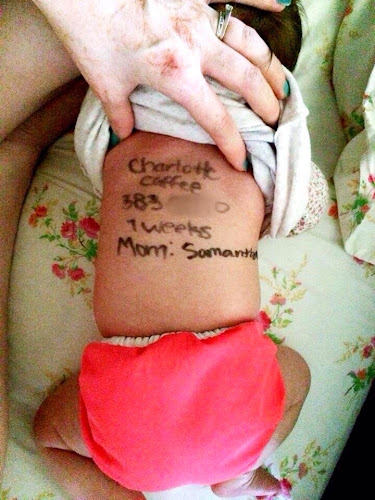 Charlotte
Coffee
383
7 weeks
Mom: Samantha